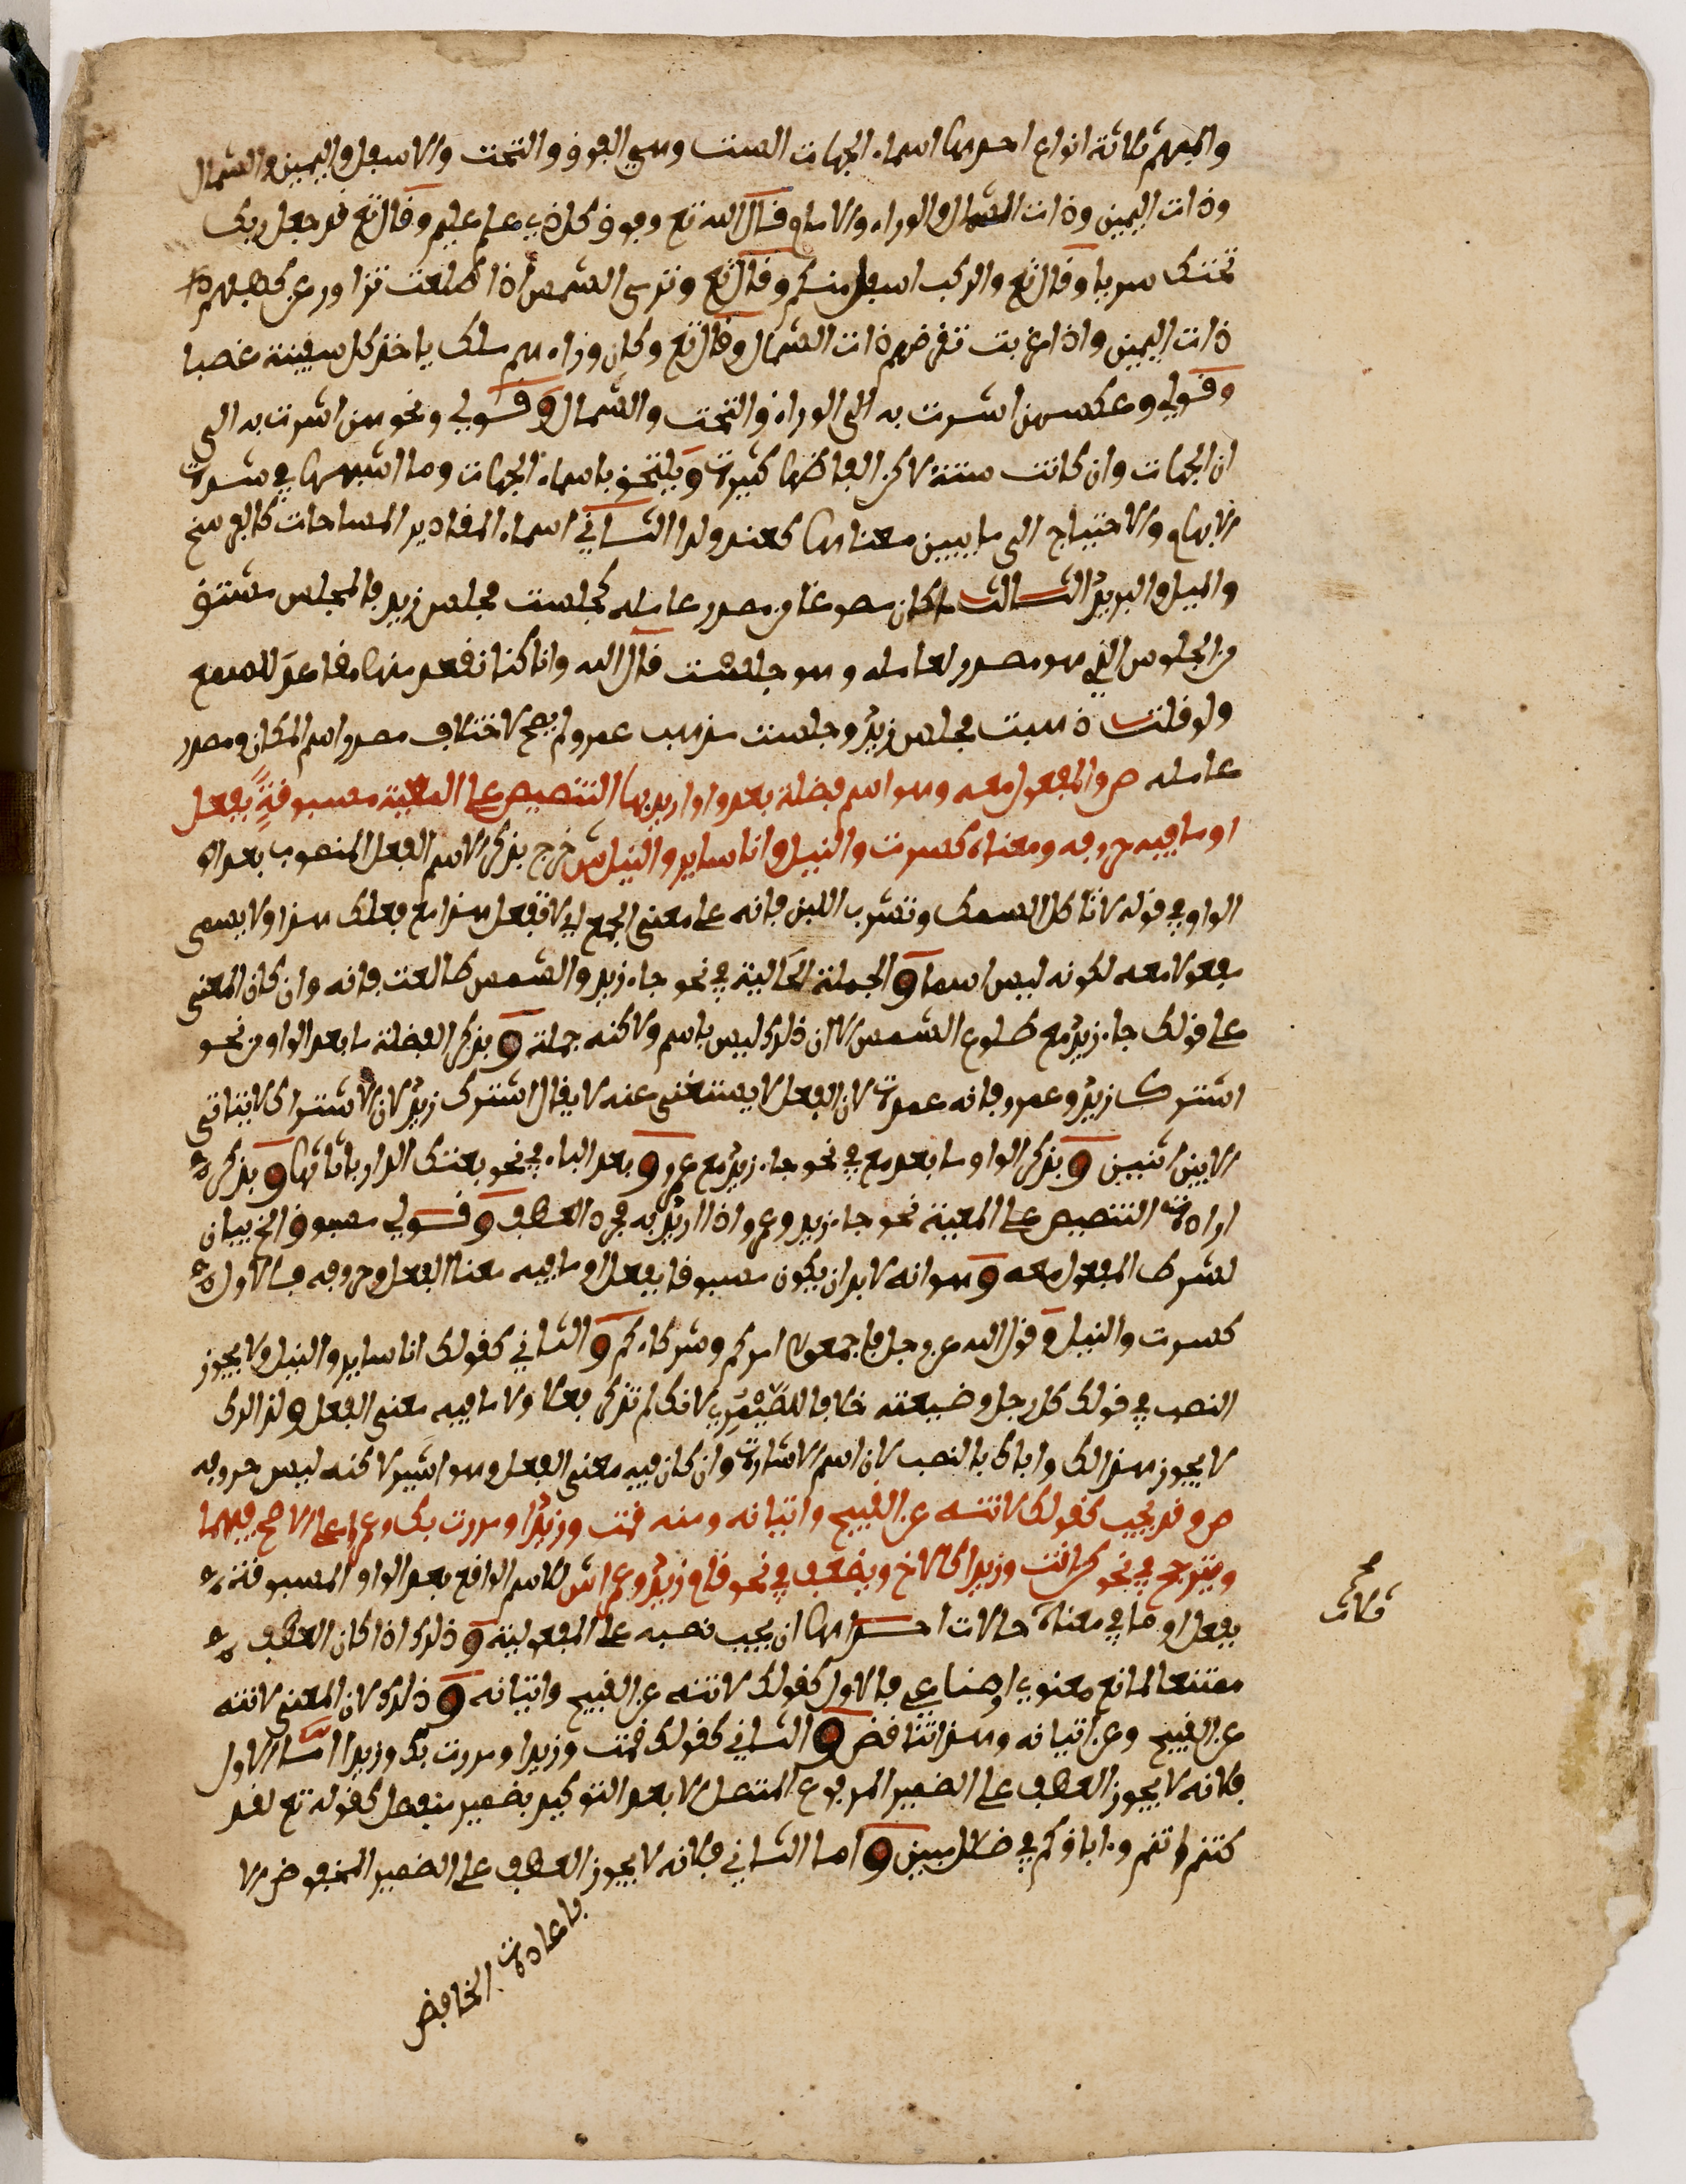 والمبهم ثلاثة انواع احدها اسماء الجهات الست وهي الفوق والتحت والاسفل واليمين والشمال
وذات اليمين وذات الشمال والوراء والامام قال الله تع وفوق كل ذي علم عليم وقال تع قد جعل ربك
تحتك سريا وقال تع والركب اسفل منكم وقال تع وترى الشمس اذا طلعت تزاور عن كهفهم
ذات اليمين واذا غربت تقرضهم ذات الشمال وقال تع وكان وراءهم ملك ياخذ كل سفينة غصبا
وقولي وعكسهن اشرت به الى الوراء والتحت والشمال وقولي ونحوهن اشرت به الى
ان الجهات وان كانت ستة لاكن الفاظها كثيرة ويلتحق باسماء الجهات وما اشبهها في شدة
الابهام والاحتياج الى ما يبين معناها كعند ولدا الثاني اسماء المقادير المساحات كالفرسخ
والميل والبريد الثالث ما كان مصوغا من مصدر عامله كجلست مجلس زيد فالمجلس مشتق
من الجلوس الذي هو مصدر لعامله وهو جلست قال الله وانا كنا نقعد منها مقاعد للسمع
ولو قلت ذهبت مجلس زيد وجلست مذهب عمرو لم يصح لاختلاف مصدر اسم المكان ومصدر
عامله ص والمفعول معه وهو اسم فضلة بعد واو اريد بها التنصيص على المعية مسبوقة بفعل
او ما فيه حروفه ومعناه كسرت والنيل وانا ساير والنيل ش خرج بذكر الاسم الفعل المنصوب بعد
الواو في قوله لا تاكل السمك وتشرب اللبن فانه على معنى الجمع اي لا تفعل هذا مع فعلك هذا ولا يسمى
مفعولا معه لكونه ليس اسما والجملة الحالية في نحو جاء زيد والشمس طالعت فانه وان كان المعنى
على قولك جاء زيد مع طلوع الشمس الا ان ذلك ليس باسم ولاكنه جملة وبذكر الفضلة ما بعد الواو من نحو
اشترك زيد وعمرو فانه عمدة لان الفعل لا يستغنى عنه لا يقال اشترك زيد لان الاشتراك لا يتاتى
الا بين اثنين وبذكر الواو ما بعد مع في نحو جاء زيد مع عمرو وبعد الباء في نحو بعتك الدار باثاثها وبذكر
ارادة التنصيص على المعية نحو جاء زيد وعمرو اذا اريد به مجرد العطف وقولي مسبوق الخ بيان
لشرط المفعول معه وهو انه لا بد ان يكون مسبوقا بفعل او ما فيه معنا الفعل وحروفه فالاول
كسرت والنيل وقول الله عز وجل فاجمعوا امركم وشركاءكم والثاني كقولك انا ساير والنيل ولا يجوز
النصب في قولك كل رجل وضيعته خلافا للصيمري لانك لم تذكر فعلا ولا ما فيه معنى الفعل ولذالك
لا يجوز هذا لك واباك بالنصب لان اسم الاشارة وان كان فيه معنى الفعل وهو اشير لاكنه ليس حروفه
ص وقد يجب كقولك لا تنه عن القبيح واتيانه ومنه قمت وزيدا ومررت بك وعمرا على الاصح فيهما
ويترجح في نحو كن انت وزيدا كالاخ ويضعف في نحو قام زيد وعمرا ش للاسم الواقع بعد الواو المسبوقة
بفعل او ما في معناه حالات احداها ان يجب نصبه على المفعولية وذلك اذا كان العطف
ممتنعا لمانع معنوي او صناعي فالاول كقولك لا تنه عن القبيح واتيانه وذلك لان المعنى لا تنه
عن القبيح وعن اتيانه وهذا تناقض والثاني كقولك قمت وزيدا ومررت بك وزيدا اما الاول
فلانه لا يجوز العطف على الضمير المرفوع المتصل الا بعد التوكيد بضمير منفصل كقوله تع لقد
كنتم انتم وءاباؤكم في ضلال مبين واما الثاني فلانه لا يجوز العطف على الضمير المخفوض الا
باعادة الخافض
ثلاث